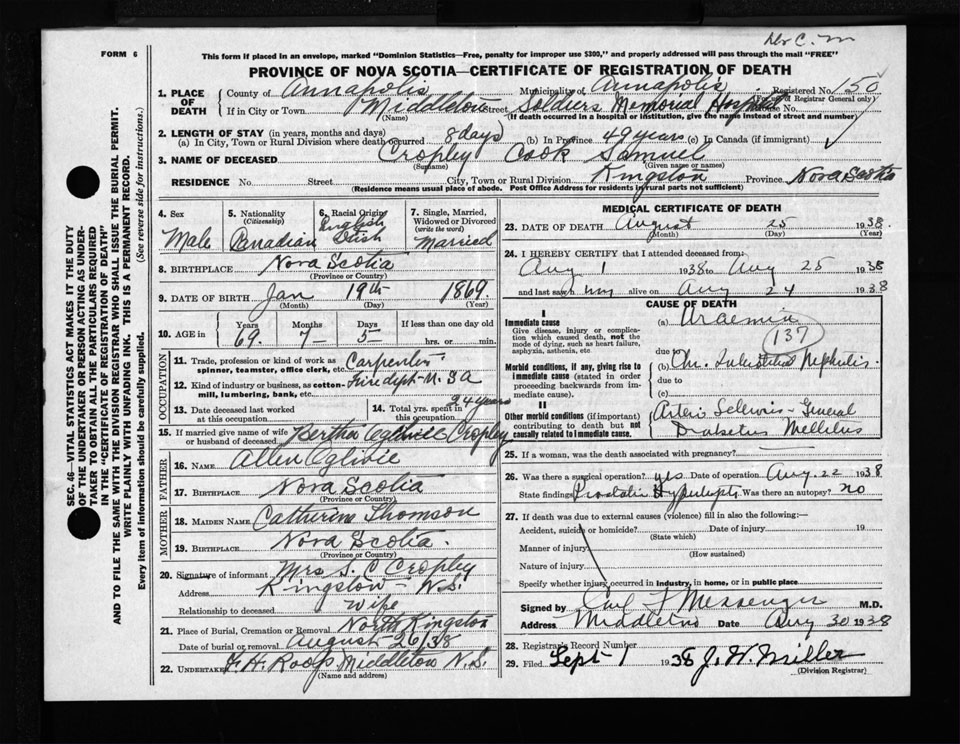 Dr C. M
FORM 6
This form if placed in an envelope, marked "Dominion Statistics—Free, penalty for improper use $300," and properly addressed will pass through the mail "FREE"
PROVINCE OF NOVA SCOTIA—CERTIFICATE OF REGISTRATION OF DEATH
SEC. 46—VITAL STATISTICS ACT MAKES IT THE DUTY OF THE UNDERTAKER OR PERSON ACTING AS UNDERTAKER TO OBTAIN ALL THE PARTICULARS REQUIRED IN THE "CERTIFICATE OF REGISTRATION OF DEATH"
AND TO FILE THE SAME WITH THE DIVISION REGISTRAR WHO SHALL ISSUE THE BURIAL PERMIT.
WRITE PLAINLY WITH UNFADING INK. THIS IS A PERMANENT RECORD.
Every item of information should be carefully supplied. (See reverse side for instructions.)
1. PLACE OF DEATH County of Annapolis Municipality of Annapolis Registered No. 150
(For use of Registrar General only)
If in City or Town Middleton Street Soldiers Memorial Hospital House No.
(Name) (If death occurred in a hospital or institution, give the name instead of street and number)
2. LENGTH OF STAY (in years, months and days)
(a) In City, Town or Rural Division where death occurred 8 days (b) In Province 49 years (c) In Canada (if immigrant)
3. NAME OF DECEASED Cropley Cook Samuel
(Surname) (Given name or names)
RESIDENCE No. Street City, Town or Rural Division Kingston Province Nova Scotia
(Residence means usual place of abode. Post Office Address for residents in rural parts not sufficient)
4. Sex Male
5. Nationality (Citizenship) Canadian
6. Racial Origin English Irish
7. Single, Married, Widowed or Divorced (write the word) Married
8. BIRTHPLACE Nova Scotia
(Province or Country)
9. DATE OF BIRTH Jan 19th 1869
(Month) (Day) (Year)
10. AGE IN Years 69 Months 7 Days 5 If less than one day old hrs. or min.
OCCUPATION
11. Trade, profession or kind of work as spinner, teamster, office clerk, etc. Carpenter
12. Kind of industry or business, as cotton-mill, lumbering, bank, etc. Fire dept - U.S.A
13. Date deceased last worked at this occupation
14. Total yrs. spent in this occupation 24 years
15. If married give name of wife or husband of deceased Bertha Cropley
FATHER
16. NAME Allen Oglivie
17. BIRTHPLACE Nova Scotia
MOTHER
18. MAIDEN NAME Catherine Thomson
19. BIRTHPLACE Nova Scotia
(Province or Country)
20. Signature of informant Mrs S. C Cropley
Address Kingston - N.S.
Relationship to deceased wife
21. Place of Burial, Cremation or Removal North Kingston
Date of burial or removal August 26/38
22. Undertaker Roop Middleton N.S.
(Name and address)
MEDICAL CERTIFICATE OF DEATH
23. DATE OF DEATH August 25 1938
(Month) (Day) (Year)
24. I HEREBY CERTIFY that I attended deceased from
Aug 1 1938 to Aug 25 1938
and last saw him alive on Aug 24 1938
CAUSE OF DEATH
I
Immediate cause
Give disease, injury or complication which caused death, not the mode of dying, such as heart failure, asphyxia, asthenia, etc
(a) Uraemia
137
due to
Morbid conditions, if any, giving rise to immediate cause (stated in order proceeding backwards from immediate cause).
(b) Chr. Interstitial Nephritis
due to
(c)
II
Other morbid conditions (if important) contributing to death but not causally related to immediate cause.
Arterio Sclerosis - General
Diabetus Mellitus
25. If a woman, was the death associated with pregnancy?
26. Was there a surgical operation? yes Date of operation Aug. 22 1938
State findings Prostatic Was there an autopsy? no
27. If death was due to external causes (violence) fill in also the following:—
Accident, suicide or homicide? Date of injury 19
(State which)
Manner of injury
(How sustained)
Nature of injury
Specify whether injury occurred in industry, in home, or in public place
Signed by Carl F Messenger M.D.
Address Middleton Date Aug 30 1938
28. Registrar's Record Number
29. Filed Sept 1 1938 J. H. Miller
(Division Registrar)